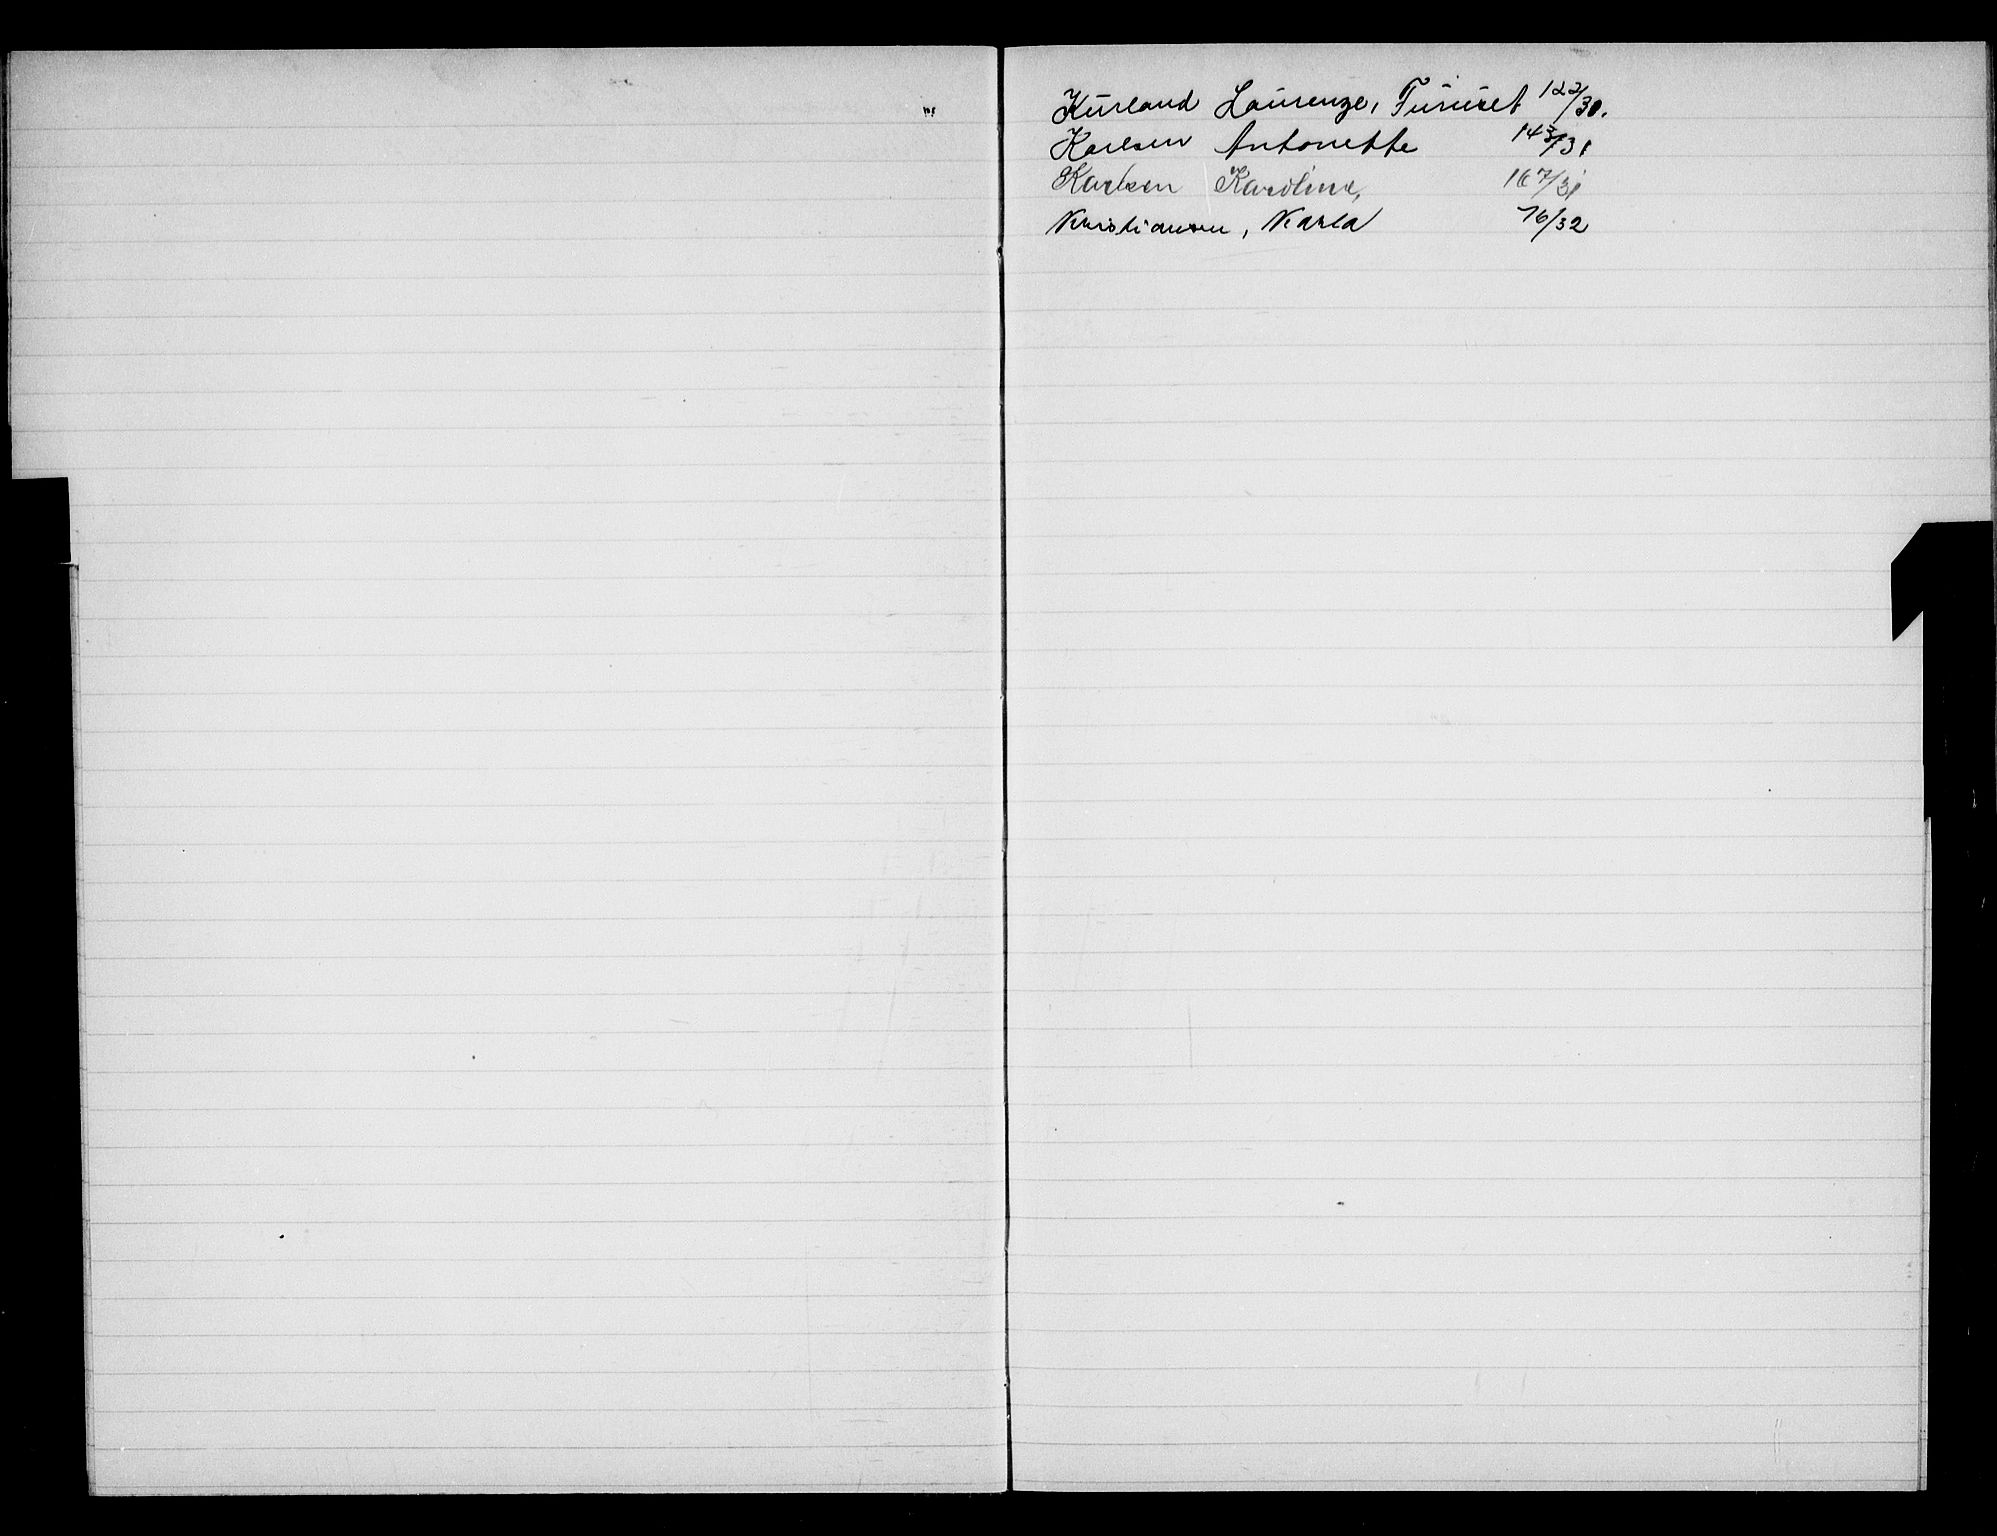 Kurland Laurenze, Furuset 122/30.
Karlsen Antonette 143/31
Karlsen Karoline, 167/31
Kristiansen, Karla 76/32